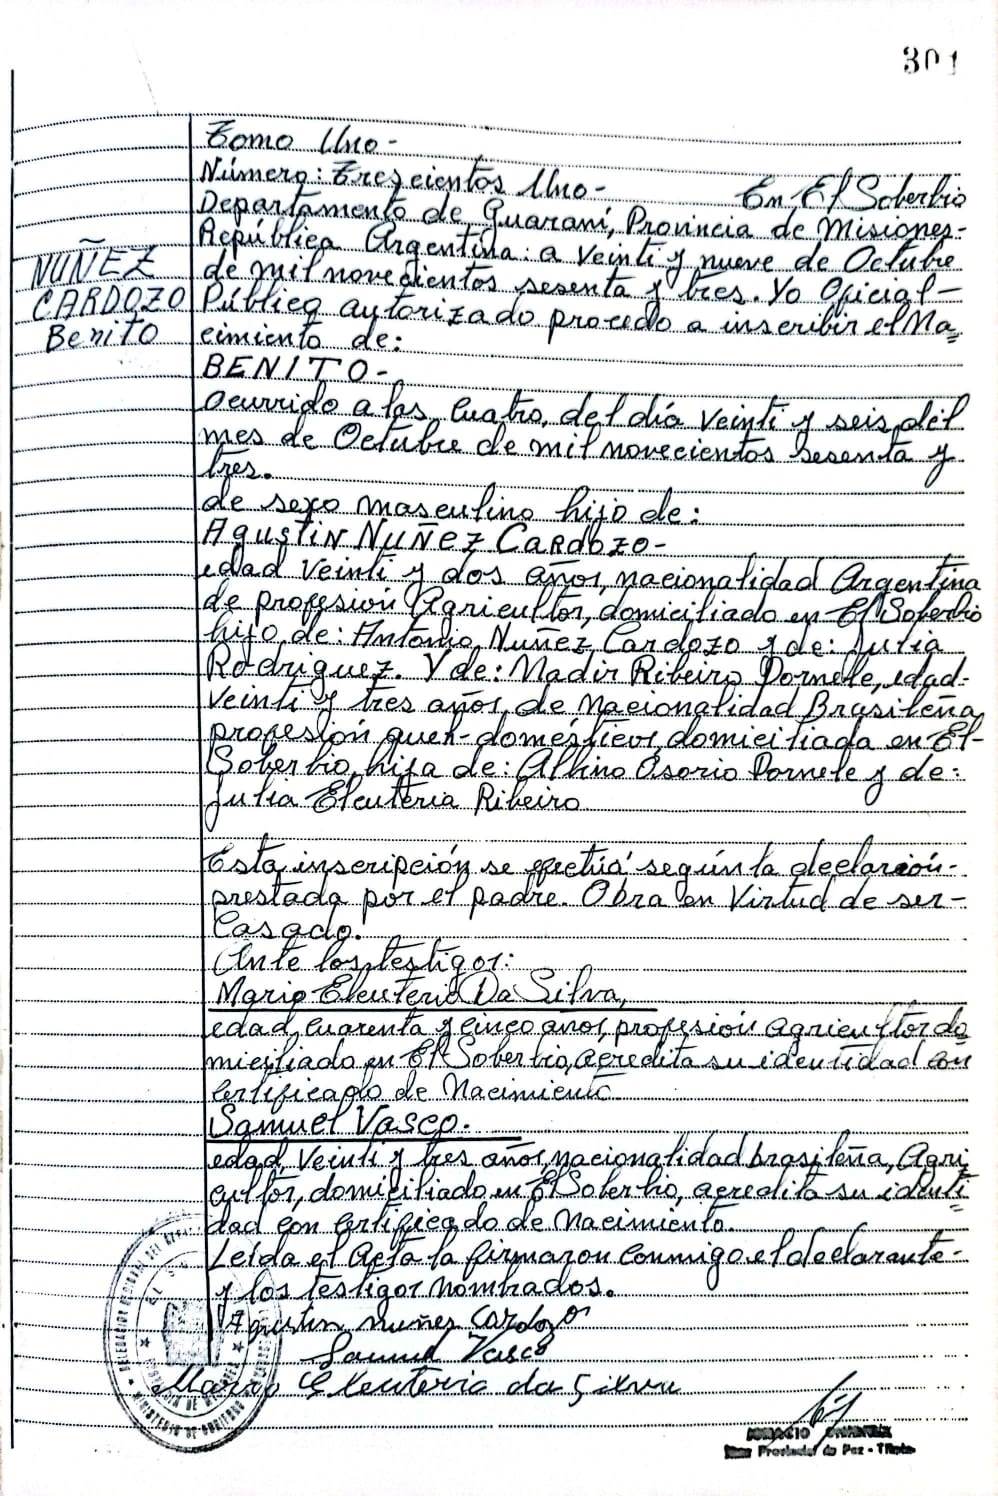 301
Tomo Uno-
Número: Trescientos Uno- En El Soberbio
Departamento de Guaraní, Provincia de Misiones-
República Argentina: a Veinti y nueve de Octubre
de mil novecientos sesenta y tres. Yo Oficial-
Público autorizado procedo a inscribir el Na=
cimiento de:
NUÑEZ
CARDOZO
Benito
BENITO-
Ocurrido a las Cuatro, del día Veinti y seis del
mes de Octubre de mil novecientos Sesenta y
tres.
de sexo masculino hijo de:
AGUSTIN NUÑEZ CARDOZO-
edad Veinti y dos años, nacionalidad Argentina
de profesión Agricultor, domiciliado en El Soberbio
hijo de: Antonio Nuñez Cardozo y de: Julia
Rodriguez. Y de: Nadir Ribeiro Dornele, edad-
Veinti y tres años, de Nacionalidad Brasileña
profesión queh-domésticos, domiciliada en El-
Soberbio, hija de: Albino Osorio Dornele y de:
Julia Eleuteria Ribeiro
Esta inscripción se efectúa según la declaración-
prestada por el padre. Obra en Virtud de ser-
Casado.
Ante los testigos:
Mario Eleuterio Da Silva,
edad, Cuarenta y Cinco años, profesión agricultor do
miciliado en El Soberbio, acredita su identidad con
Certificado de Nacimiento.
Samuel Vasco.
edad, Veinti y tres años, nacionalidad brasileña, Agri
cultor, domiciliado en El Soberbio, acredita su identi=
dad con Certificado de Nacimiento.
Leída el Acta la firmaron Conmigo el declarante-
y los testigos nombrados.
Agustin nuñes Cardozo
Samuel Vasco
Mario Eleuterio da Silva
DELEGACION
MINISTERIO DE GOBIERNO
IGNACIO
Juez Provincial de Paz -